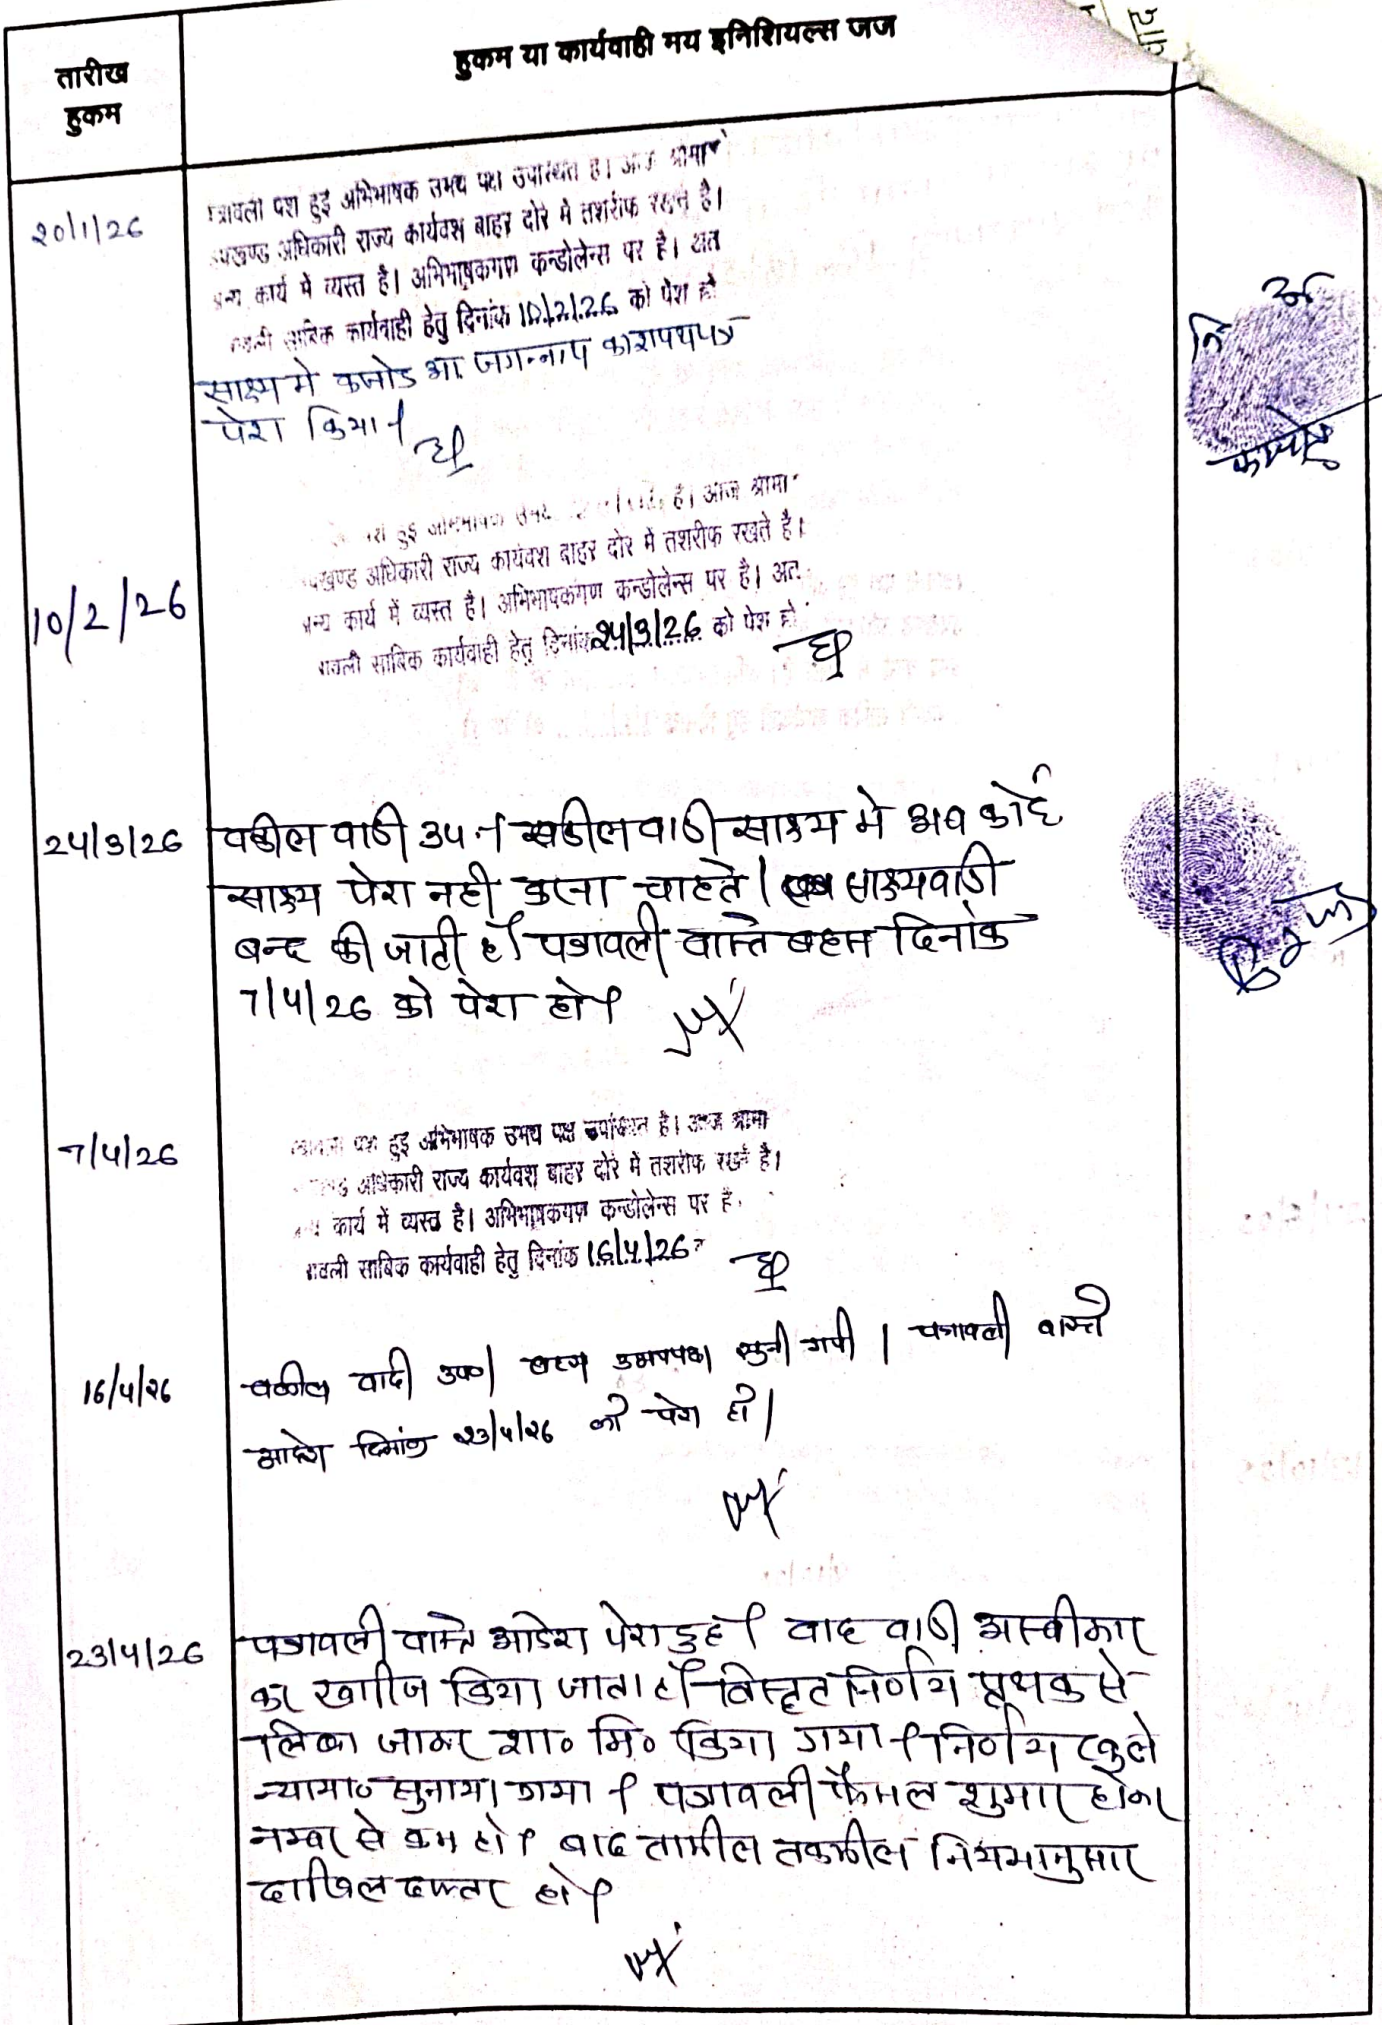 तारीख
हुकम
हुकम या कार्यवाही मय इनिशियल्स जज
20/1/26
पेश हुई अभिभाषक उभय पक्ष उपस्थित है। आज
अधिकारी राज्य कार्यवश बाहर दोरे में तशरीफ रखते है।
कार्य में व्यस्त है। अभिभाषकगण कन्डोलेन्स पर है। अत
कार्यवाही हेतु दिनांक 10/2/26 को पेश हो
साक्ष्य मे कजोड आ. जगन्नाथ का शपथपत्र
पेश किया।
कजोड
10/2/26
हुई है। आज
अधिकारी राज्य कार्यवश बाहर दोरे में तशरीफ रखते है।
कार्य में व्यस्त है। अभिभाषकगण कन्डोलेन्स पर है। अत
साबिक कार्यवाही हेतु दिनांक 24/3/26 को पेश हो
24/3/26
वकील वादी उप। वकील वादी साक्ष्य मे अब कोई
साक्ष्य पेश नही करना चाहते। साक्ष्य वादी
बन्द की जाती है। पत्रावली वास्ते बहस दिनांक
7/4/26 को पेश हो।
7/4/26
पेश हुई अभिभाषक उभय पक्ष उपस्थित है। आज
अधिकारी राज्य कार्यवश बाहर दोरे में तशरीफ रखते है।
कार्य में व्यस्त है। अभिभाषकगण कन्डोलेन्स पर है
साबिक कार्यवाही हेतु दिनांक 16/4/26
16/4/26
वकील वादी उप०। बहस उभयपक्ष सुनी गयी। पत्रावली वास्ते
आदेश दिनांक 23/4/26 को पेश हो।
23/4/26
पत्रावली वास्ते आदेश पेश हुई। वाद वादी अस्वीकार
कर खारिज किया जाता है। विस्तृत निर्णय पृथक से
लिखा जाकर शा० मि० किया गया। निर्णय खुले
न्याया० सुनाया गया। पत्रावली फैसल शुमार होकर
नम्बर से कम हो। बाद तामील तकमील नियमानुसार
दाखिल दफ्तर हो।